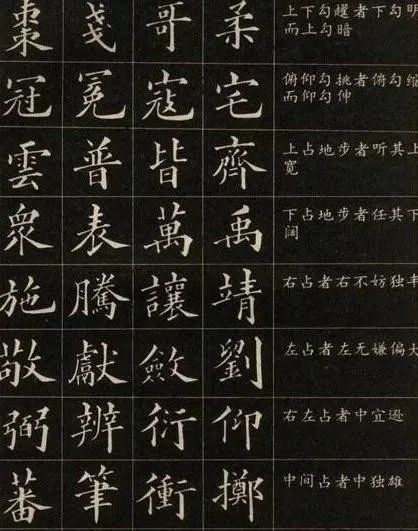 棗戔哥柔
上下勾趯者下勾明
而上勾暗
冠冕寇宅
俯仰勾挑者俯勾缩
而仰勾伸
雲普皆齊
上占地步者听其上
宽
眾表萬禹
下占地步者任其下
阔
施騰讓靖
右占者右不妨独丰
敬獻斂劉
左占者左无嫌偏大
弼辨衍仰
右左占者中宜逊
蕃筆衝擲
中间占者中独雄